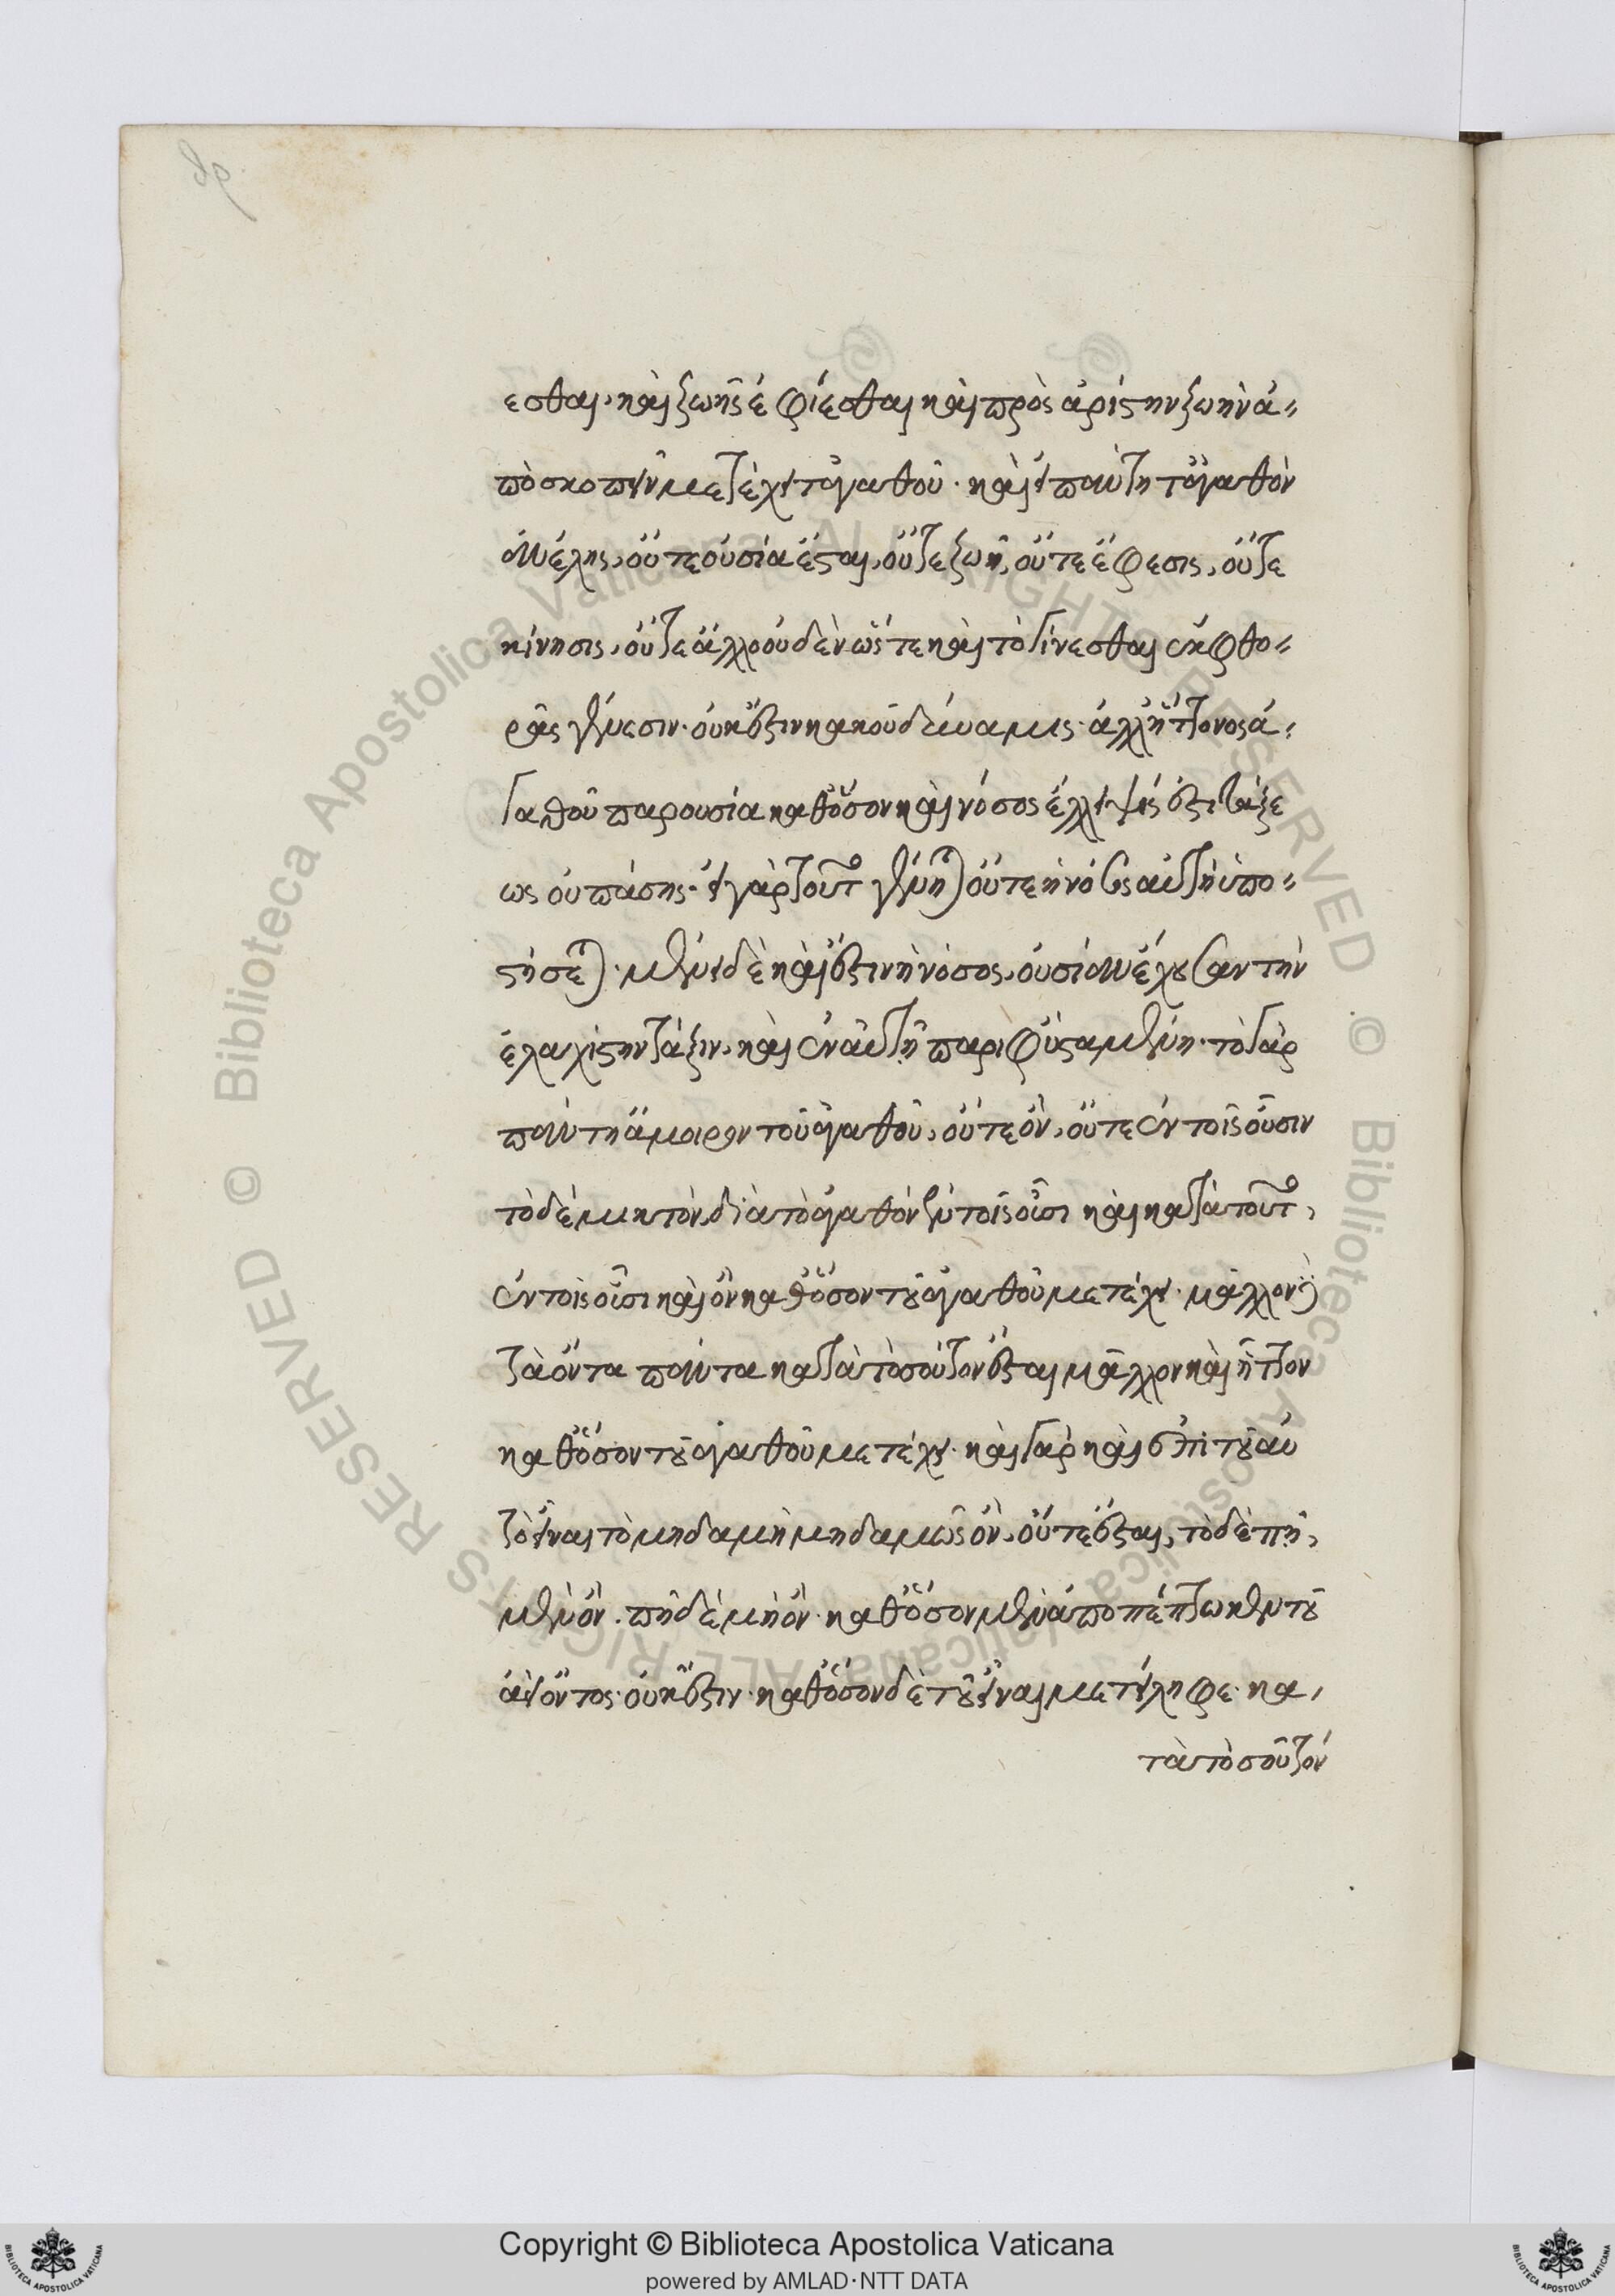 εσθαι· καὶ ζωῆς ἐφίεσθαι καὶ πρὸς ἀρίστην ζωὴν ἀ-
ποσκοπεῖν μετέχει τἀγαθοῦ· καὶ εἰ πάντη τἀγαθὸν
ἀνέλῃς, οὔτε οὐσία ἔσται, οὔτε ζωὴ, οὔτε ἔφεσις, οὔτε
κίνησις, οὔτε ἄλλο οὐδὲν ὥστε καὶ τὸ γίνεσθαι ἐκ φθο-
ρᾶς γένεσιν· οὐκ ἔστιν κακοῦ δύναμις· ἀλλ' ἥττονος ἀ-
γαθοῦ παρουσία καθόσον καὶ νόσος ἔλλειψίς ἐστι τάξε
ως οὐ πάσης· εἰ γὰρ τοῦτο γένηται οὔτε ἡ νόσος αὐτὴ ὑπο-
στήσεται· μένει δὲ καὶ ἔστιν ἡ νόσος, οὐσίαν ἔχουσα τὴν
ἐλαχίστην τάξιν, καὶ ἐν αὐτῇ παρυφισταμένη· τὸ γὰρ
πάντη ἄμοιρον τοῦ ἀγαθοῦ, οὔτε ὂν, οὔτε ἐν τοῖς οὖσιν
τὸ δὲ μικτὸν, διὰ τὸ ἀγαθὸν ἐν τοῖς οὖσι καὶ κατὰ τοῦτο,
ἐν τοῖς οὖσι καὶ ὂν καθόσον τοῦ ἀγαθοῦ μετέχει· μᾶλλον δὲ
τὰ ὄντα πάντα κατὰ τοσοῦτον ἔσται μᾶλλον καὶ ἧττον
καθόσον τοῦ ἀγαθοῦ μετέχει· καὶ γὰρ καὶ ἐπὶ τοῦ αὐ
τὸ εἶναι τὸ μηδαμῆ μηδαμῶς ὂν, οὔτε ἔσται, τὸ δὲ πῆ,
μὲν ὂν· πῆ δὲ μὴ ὂν· καθόσον μὲν ἀποπέπτωκεν τοῦ
ἀεὶ ὄντος· οὐκ ἔστιν· καθόσον δὲ τοῦ εἶναι μετείληφε· κα-
τὰ τοσοῦτον